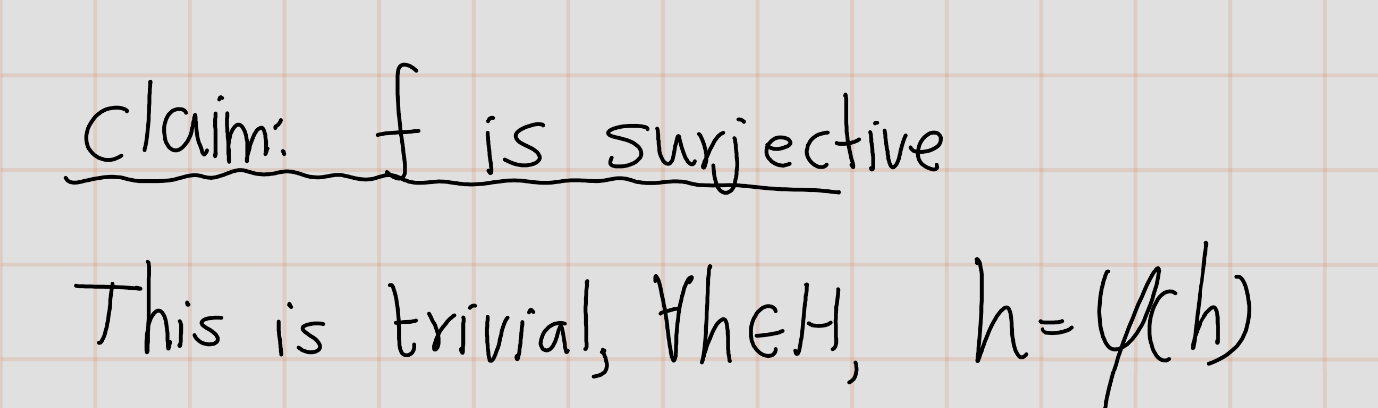 claim: f is surjective
This is trivial, ∀h∈H, h=φ(h)